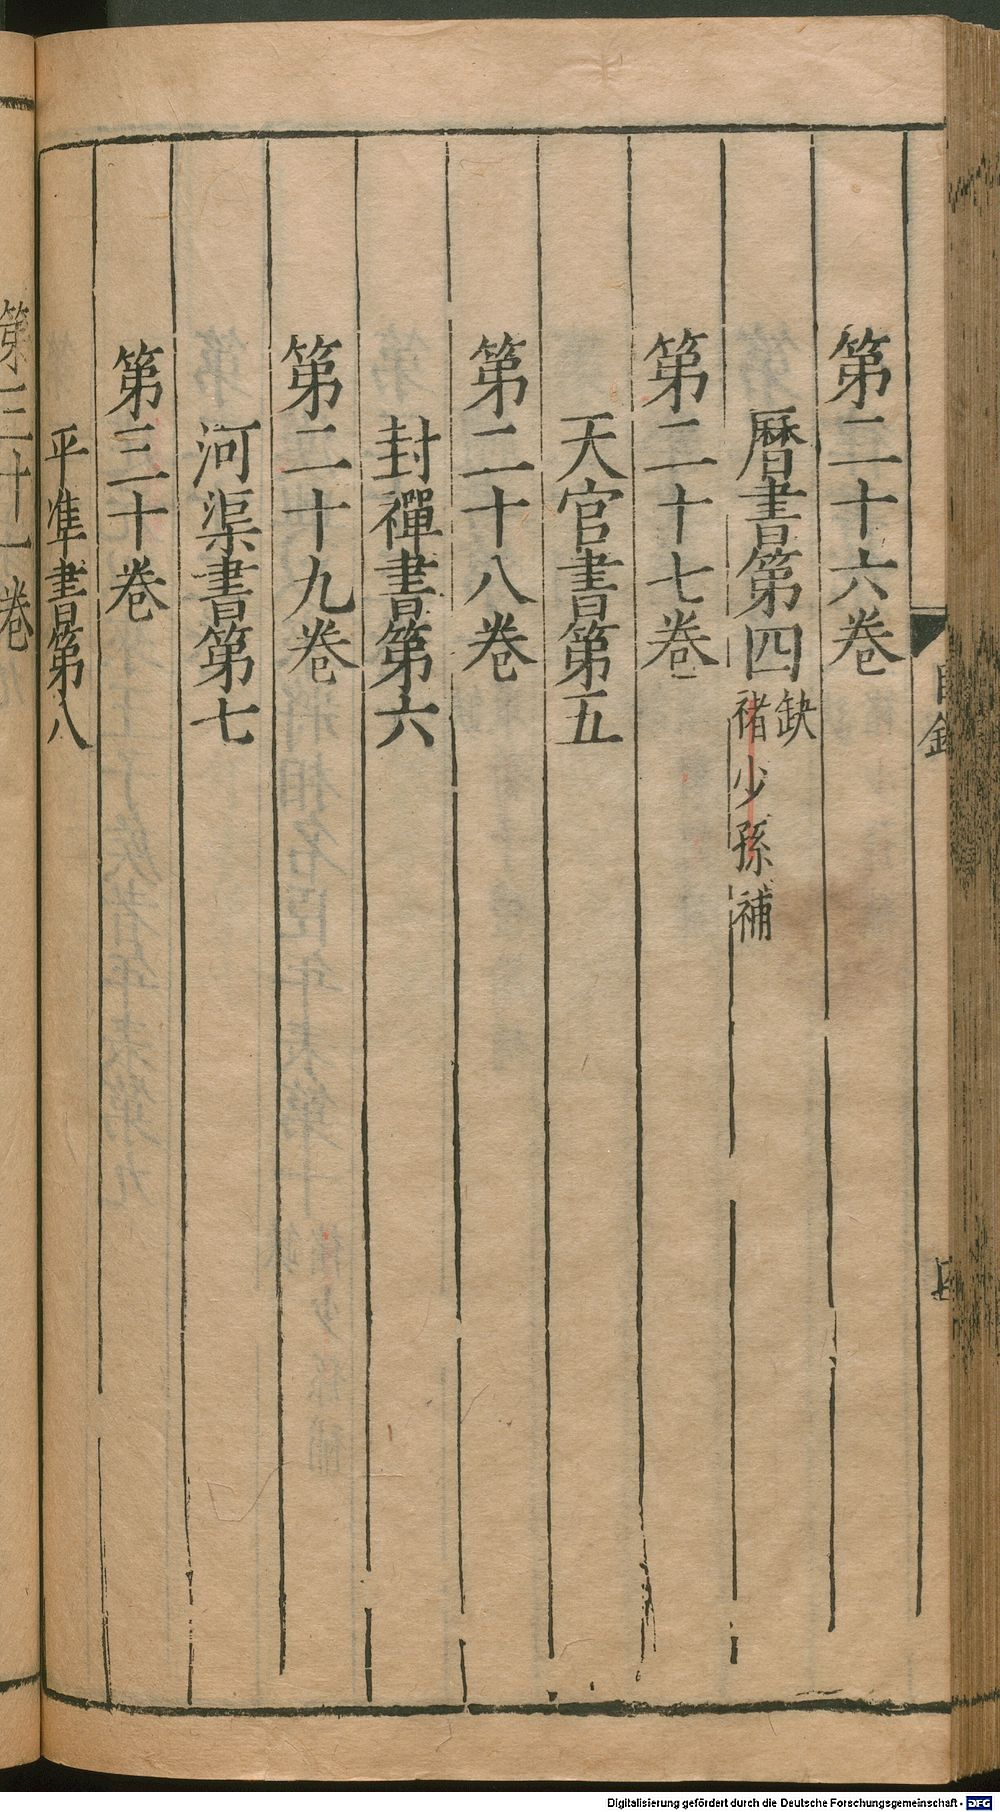 第二十六卷
曆書第四 缺 褚少孫補
第二十七卷
天官書第五
第二十八卷
封禪書第六
第二十九卷
河渠書第七
第三十卷
平準書第八
第三十一卷
目錄
Digitalisierung gefördert durch die Deutsche Forschungsgemeinschaft - DFG